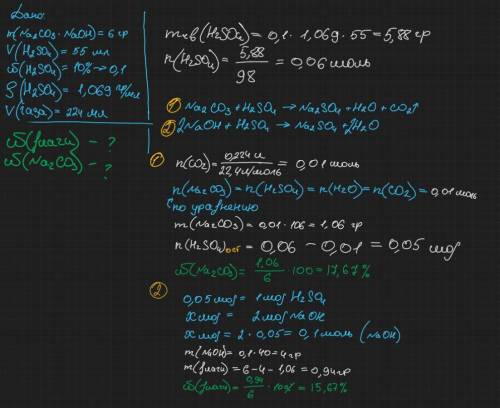 Дано:
m(Na₂CO₃·NaOH)=6 гр
V(H₂SO₄)=55 мл
ω(H₂SO₄)=10%→0,1
ρ(H₂SO₄)=1,069 гр/мл
V(газа)=224 мл
ω(влаги) - ?
ω(Na₂CO₃) - ?
m в-ва(H₂SO₄)=0,1·1,069·55=5,88 гр
n(H₂SO₄)=5,88/98=0,06 моль
① Na₂CO₃+H₂SO₄→Na₂SO₄+H₂O+CO₂↑
② 2NaOH+H₂SO₄→Na₂SO₄+2H₂O
① n(CO₂)=0,224 л/22,4 л/моль=0,01 моль
n(Na₂CO₃)=n(H₂SO₄)=n(H₂O)=n(CO₂)=0,01 моль
по уравнению
m(Na₂CO₃)=0,01·106=1,06 гр
n(H₂SO₄)ост=0,06-0,01=0,05 моль
ω(Na₂CO₃)=1,06/6·100=17,67%
②
0,05 моль=1 моль H₂SO₄
x моль=2 моль NaOH
x моль=2·0,05=0,1 моль (NaOH)
m(NaOH)=0,1·40=4 гр
m(влаги)=6-4-1,06=0,94 гр
ω(влаги)=0,94/6·100%=15,67%